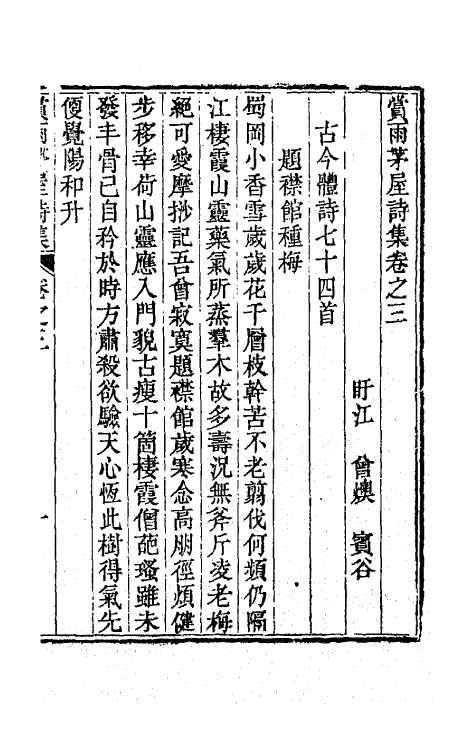 賞雨茅屋詩集卷之三
盱江　曾燠　賓谷
古今體詩七十四首
題襟館種梅
蜀岡小香雪歲歲花千層枝幹苦不老翦伐何頻仍隔
江棲霞山靈藥氣所蒸羣木故多壽況無斧斤凌老梅
絕可愛摩挱記吾曾寂寞題襟館歲寒念高朋徑煩健
步移幸荷山靈應入門貌古瘦十箇棲霞僧葩瑵雖未
發丰骨已自矜於時方肅殺欲驗天心恆此樹得氣先
便覺陽和升
賞雨茅屋詩集　卷之三　一